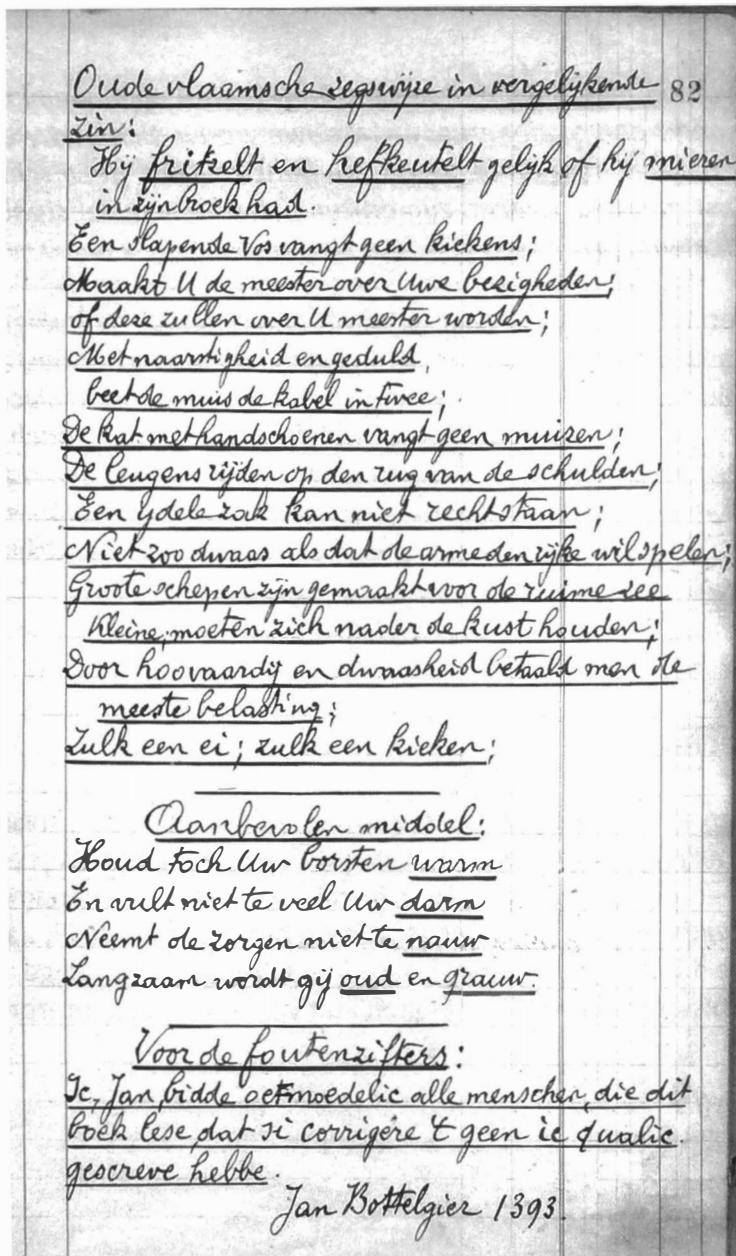 Oude vlaamsche zegswijze in vergelijkende 82
zin:
Hij fritzelt en hefkeutelt gelijk of hij mieren
in zijn broek had
Een slapende Vos vangt geen kiekens;
Maakt U de meester over Uwe bezigheden;
of deze zullen over U meester worden;
Met naarstigheid en geduld,
beet de muis de kabel in twee;
De kat met handschoenen vangt geen muizen;
De leugens rijden op den rug van de schulden;
Een ydele zak kan niet rechtstaan;
Niet zoo dwaas als dat de arme den rijke wil spelen;
Groote schepen zijn gemaakt voor de ruime zee
Kleine, moeten zich nader de kust houden;
Door hoovaardij en dwaasheid betaald men de
meeste belasting;
Zulk een ei; zulk een kieken;
Aanbevolen middel:
Houd toch Uw borsten warm
En vult niet te veel Uw darm
Neemt de zorgen niet te nauw
Langzaam wordt gij oud en grauw.
Voor de foutenzifters:
Ic, Jan, bidde oetmoedelic alle menschen, die dit
boek lese, dat si corrigére 't geen ic qualic
gescreve hebbe.
Jan Bottelgier 1393.